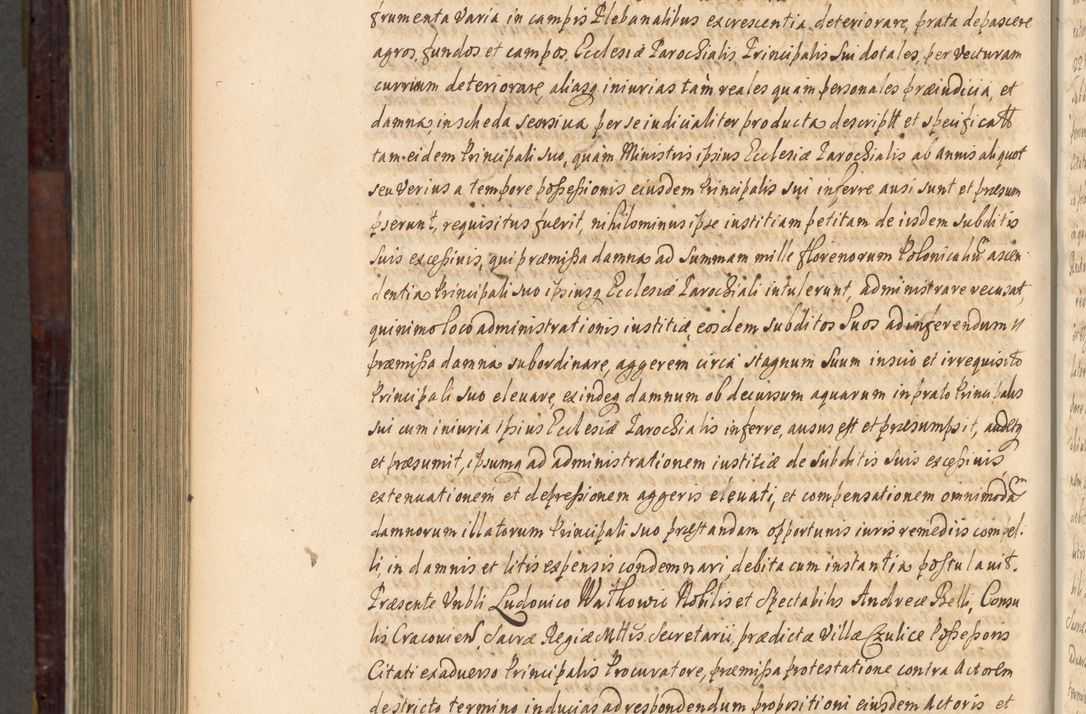 frumenta varia in campis Plebanalibus excrescentia deteriorare, prata depascere
agros, fundos et campos Ecclesiæ Parochialis Principalis sui dotales, per vecturam
curruum deteriorare, aliasq iniurias tàm reales quàm personales præiudicia, et
damna, in scheda seorsiua per se iudicialiter producta descriptt et specificatt
tam eidem Principali suo, quàm Ministris ipsius Ecclesiæ Parochialis ab annis aliquot
seu verius a tempore possessionis eiusdem Principalis sui inferre ausi sunt et præsum
pserunt, requisitus fuerit, nihilominus ipse iustitiam petitam de iisdem subditis
suis excessiuis, qui præmissa damna ad summam mille florenorum Polonicaliũ ascen¬
dentia Principali suo ipsiusq Ecclesiæ Parochiali intulerunt, administrare recusat,
quinimo loco administrationis iustitiæ, eosdem subditos suos ad inferendum
præmissa damna subordinare, aggerem circa stagnum suum inscio et irrequisito
Principali suo eleuare, exindeq damnum ob decursum aquarum in prato Principalis
sui cum iniuria ipsius Ecclesiæ Parochialis inferre, ausus est et præsumpsit, audetq
et præsumit, ipsumq ad administrationem iustitiæ de subditis suis excessiuis
extenuationem et depressionem aggeris eleuati, et compensationem omnimodam
damnorum illatorum Principali suo præstandam opportunis iuris remediis compel¬
li, in damnis et litis expensis condemnari, debita cum instantia postulauit.
Præsente Vnbli Ludouico Walkowic Nobilis et Spectabilis Andreæ Belli, Consu
lis Cracouien, Sacræ Regiæ Mttis. Secretarii, prædictæ Villæ Czulice Possessoris
Citati ex aduerso Principalis Procuratore, præmissa protestatione contra Actorem
de stricto termino inducias ad respondendum propositioni eiusdem Actoris et